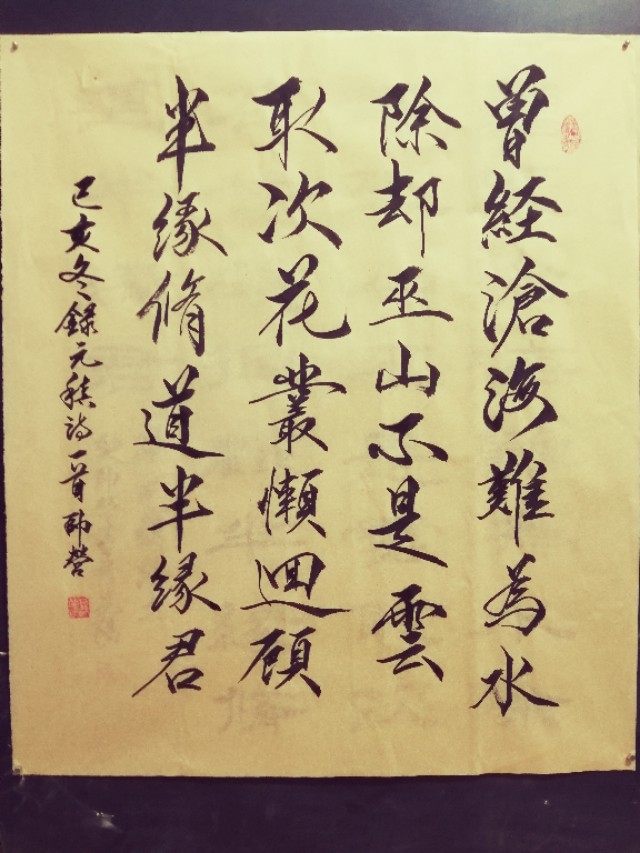 曾経滄海難為水
除却巫山不是雲
取次花叢懶迴顧
半緣脩道半緣君
己亥冬錄元稹詩一首